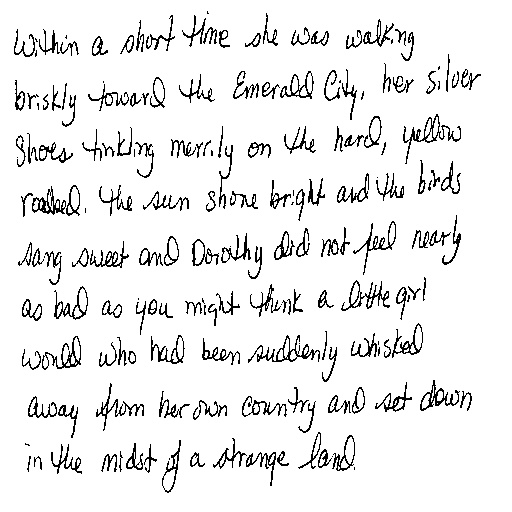 Within a short time she was walking
briskly toward the Emerald City, her silver
Shoes tinkling merrily on the hard, yellow
roadbed. The sun shone bright and the birds
sang sweet and Dorothy did not feel nearly
as bad as you might think a little girl
would who had been suddenly whisked
away from her own country and set down
in the midst of a strange land.